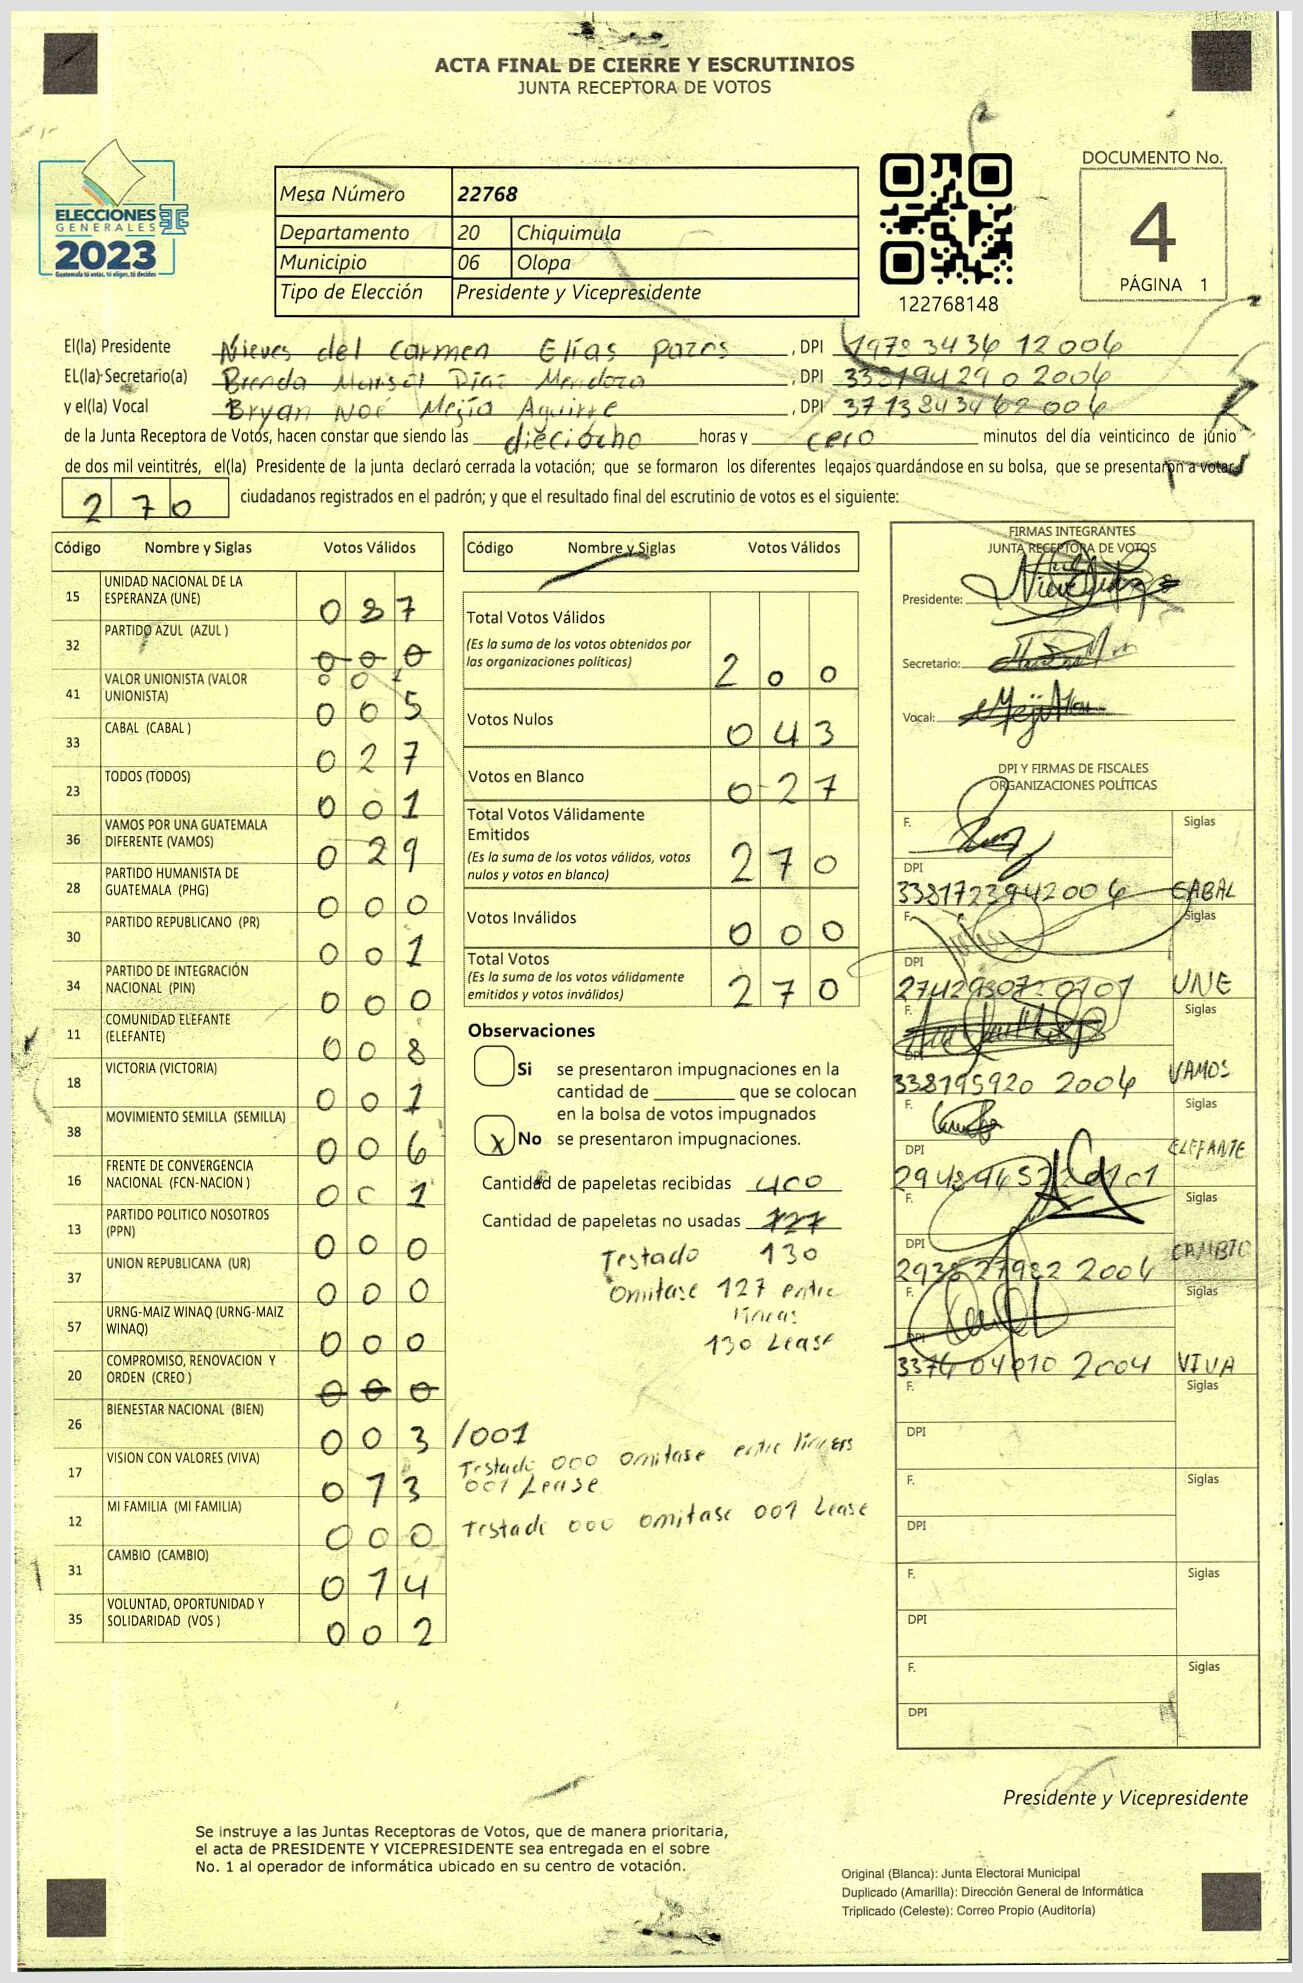 ACTA FINAL DE CIERRE Y ESCRUTINIOS
JUNTA RECEPTORA DE VOTOS
ELECCIONES
GENERALES
2023
Guatemala tú votas, tú eliges, tú decides
Mesa Número 22768
Departamento 20 Chiquimula
Municipio 06 Olopa
Tipo de Elección Presidente y Vicepresidente
122768148
DOCUMENTO No.
4
PÁGINA 1
El(la) Presidente Nieves del Carmen Elías Pazos , DPI 1978343612006
EL(la) Secretario(a) Brenda Marisol Díaz Mendoza , DPI 3381942902006
y el(la) Vocal Bryan Noé Mejía Aguirre , DPI 3713843462006
de la Junta Receptora de Votos, hacen constar que siendo las dieciocho horas y cero minutos del día veinticinco de junio
de dos mil veintitrés, el(la) Presidente de la junta declaró cerrada la votación; que se formaron los diferentes legajos guardándose en su bolsa, que se presentaron a votar
270 ciudadanos registrados en el padrón; y que el resultado final del escrutinio de votos es el siguiente:
Código Nombre y Siglas Votos Válidos
15 UNIDAD NACIONAL DE LA
ESPERANZA (UNE) 087
32 PARTIDO AZUL (AZUL ) 000
001
41 VALOR UNIONISTA (VALOR
UNIONISTA) 005
33 CABAL (CABAL ) 027
23 TODOS (TODOS) 001
36 VAMOS POR UNA GUATEMALA
DIFERENTE (VAMOS) 029
28 PARTIDO HUMANISTA DE
GUATEMALA (PHG) 000
30 PARTIDO REPUBLICANO (PR) 001
34 PARTIDO DE INTEGRACIÓN
NACIONAL (PIN) 000
11 COMUNIDAD ELEFANTE
(ELEFANTE) 008
18 VICTORIA (VICTORIA) 001
38 MOVIMIENTO SEMILLA (SEMILLA) 006
16 FRENTE DE CONVERGENCIA
NACIONAL (FCN-NACION ) 001
13 PARTIDO POLITICO NOSOTROS
(PPN) 000
37 UNION REPUBLICANA (UR) 000
57 URNG-MAIZ WINAQ (URNG-MAIZ
WINAQ) 000
20 COMPROMISO, RENOVACION Y
ORDEN (CREO ) 000
/001
26 BIENESTAR NACIONAL (BIEN) 003
17 VISION CON VALORES (VIVA) 013
12 MI FAMILIA (MI FAMILIA) 000
31 CAMBIO (CAMBIO) 014
35 VOLUNTAD, OPORTUNIDAD Y
SOLIDARIDAD (VOS ) 002
Testado 000 omitase entre lineas
001 Lease
Testado 000 omitase 001 Lease
Código Nombre y Siglas Votos Válidos
Total Votos Válidos
(Es la suma de los votos obtenidos por
las organizaciones políticas) 200
Votos Nulos 043
Votos en Blanco 027
Total Votos Válidamente
Emitidos
(Es la suma de los votos válidos, votos
nulos y votos en blanco) 270
Votos Inválidos 000
Total Votos
(Es la suma de los votos válidamente
emitidos y votos inválidos) 270
Observaciones
Si se presentaron impugnaciones en la
cantidad de ________ que se colocan
en la bolsa de votos impugnados
X No se presentaron impugnaciones.
Cantidad de papeletas recibidas 400
Cantidad de papeletas no usadas 127
Testado 130
Omitase 127 entre
lineas
130 Lease
FIRMAS INTEGRANTES
JUNTA RECEPTORA DE VOTOS
Presidente:
Secretario:
Vocal:
DPI Y FIRMAS DE FISCALES
ORGANIZACIONES POLÍTICAS
F. Siglas
DPI
3381723942006 CABAL
F. Siglas
DPI
2742930720101 UNE
F. Siglas
DPI
338195920 2004 VAMOS
F. Siglas
DPI
ELEFANTE
F. Siglas
DPI
293827982 2004 CAMBIO
F. Siglas
DPI
337404010 2004 VIVA
F. Siglas
DPI
F. Siglas
DPI
F. Siglas
DPI
F. Siglas
DPI
Presidente y Vicepresidente
Se instruye a las Juntas Receptoras de Votos, que de manera prioritaria,
el acta de PRESIDENTE Y VICEPRESIDENTE sea entregada en el sobre
No. 1 al operador de informática ubicado en su centro de votación.
Original (Blanca): Junta Electoral Municipal
Duplicado (Amarilla): Dirección General de Informática
Triplicado (Celeste): Correo Propio (Auditoría)